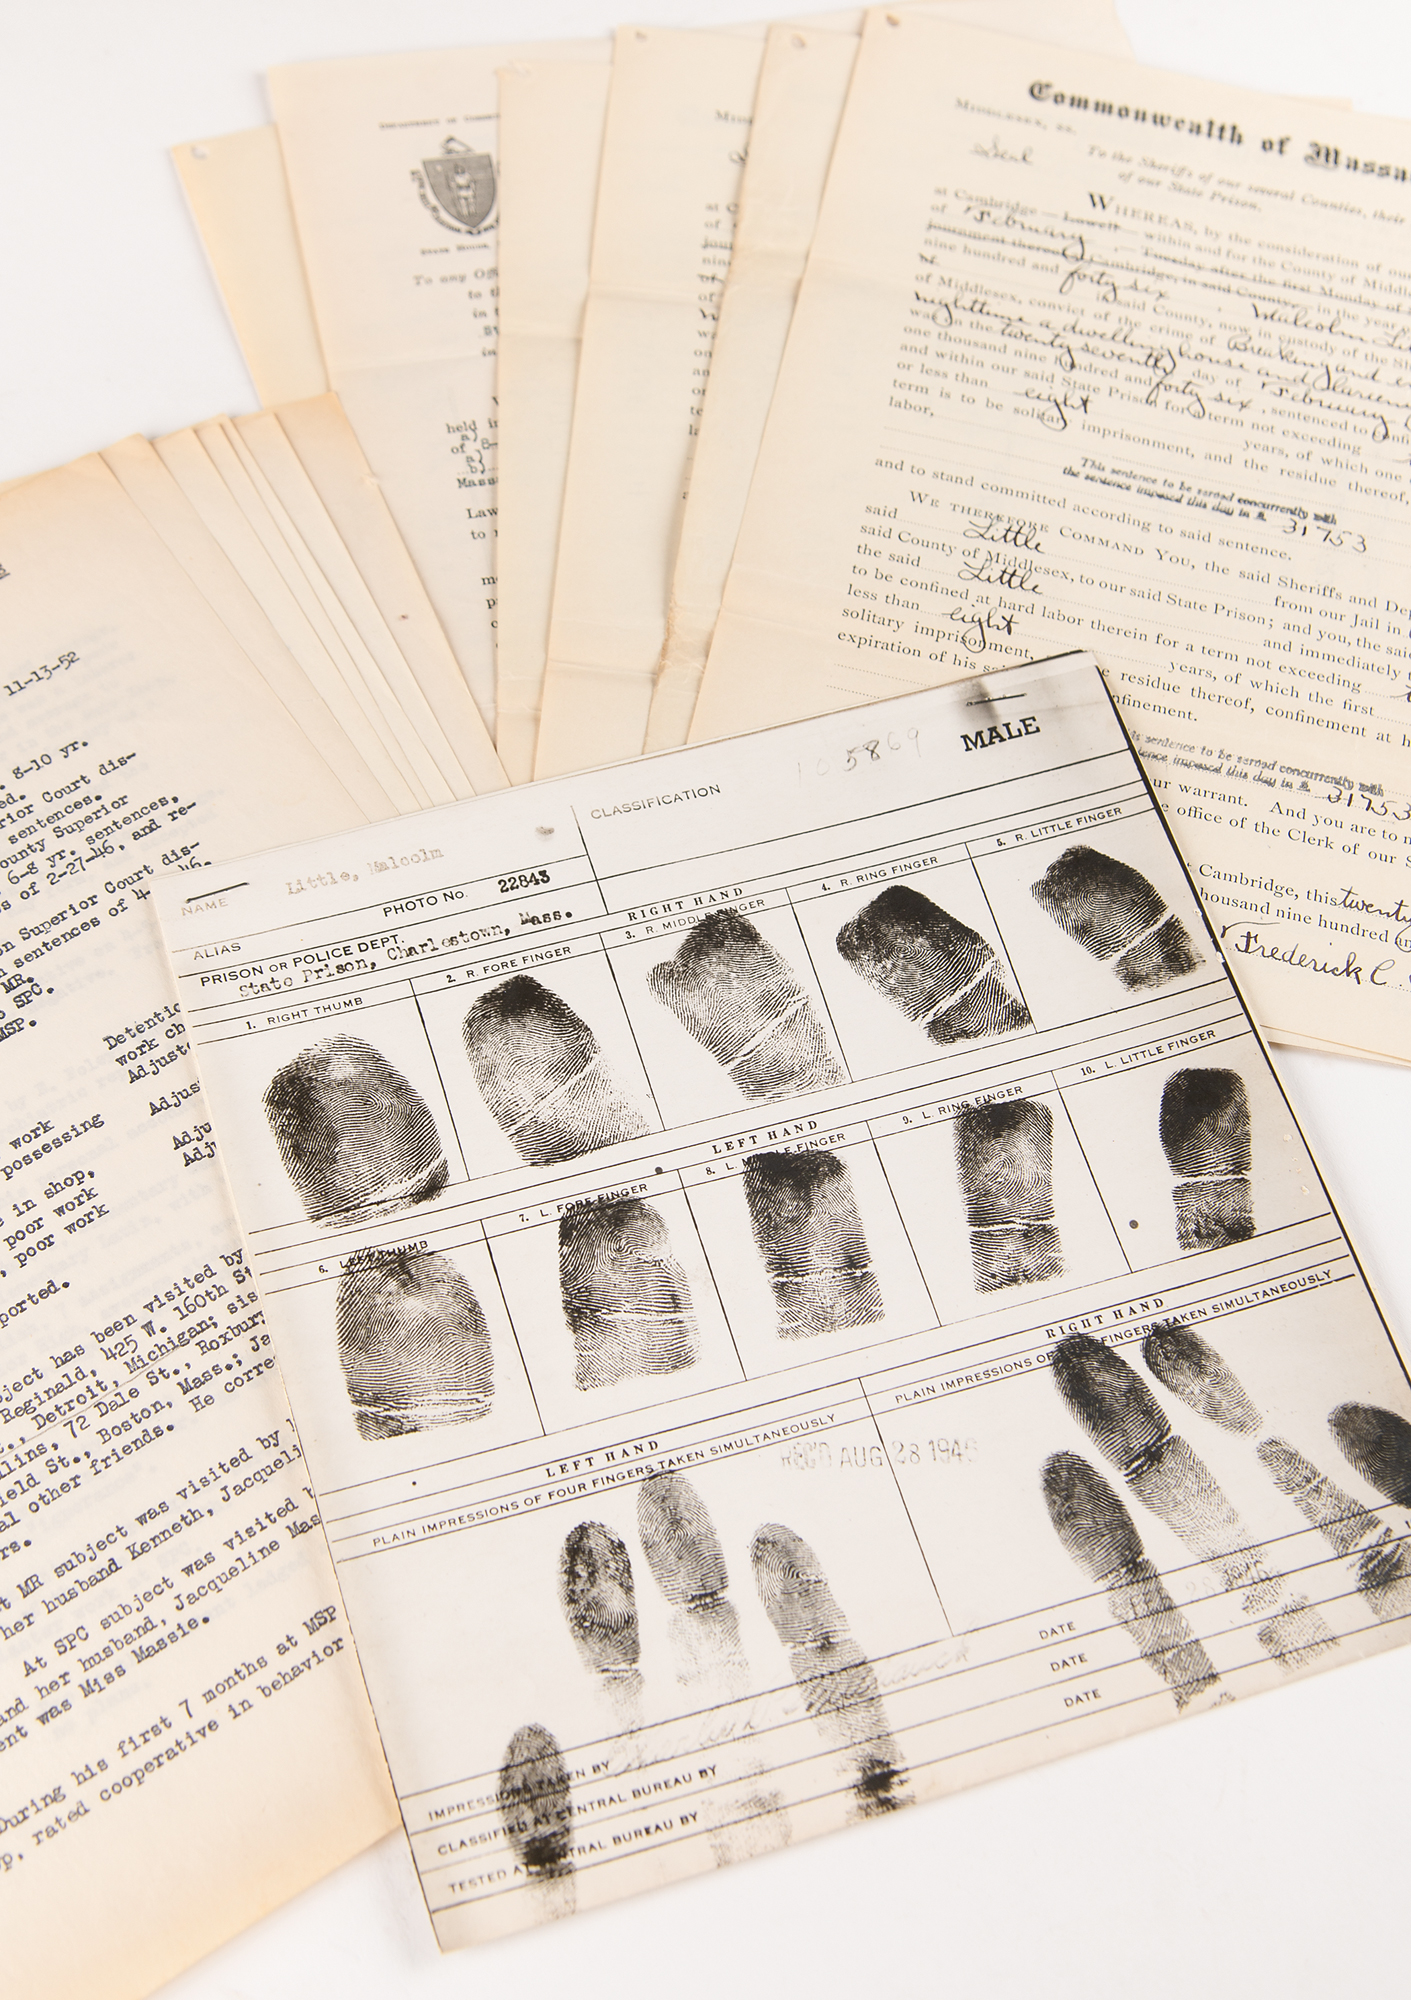 Commonwealth of Massa
MIDDLESEX, SS.
Seal
To the Sheriffs of our several Counties, their
of our State Prison.
WHEREAS, by the consideration of our
at Cambridge — Lowell — within and for the County of Middle
of February — Tuesday after the first Monday of
nine hundred and forty six in the year
in said County, Malcolm Li
of Middlesex, convict of the crime of Breaking and e
now in custody of the Sh
nighttime a dwelling house and larcen
was on the twenty seventh day of February
one thousand nine hundred and forty six, sentenced to
and within our said State Prison for a term not exceeding
or less than eight years, of which one
term is to be solitary imprisonment, and the residue thereof,
labor,
This sentence to be served concurrently with
the sentence imposed this day in #. 31753
and to stand committed according to said sentence.
WE THEREFORE COMMAND YOU, the said Sheriffs and Dep
said Little from our Jail in
said County of Middlesex, to our said State Prison; and you, the said
the said Little and immediately
to be confined at hard labor therein for a term not exceeding
less than eight years, of which the first
solitary imprisonment, residue thereof, confinement at h
expiration of his nfinement.
sentence to be served concurrently with
ence imposed this day in #. 31753
ur warrant. And you are to m
e office of the Clerk of our S
Cambridge, this twenty
housand nine hundred an
Frederick C.
STATE HOUSE,
To any Off
to th
in t
St
in
held in
of
Mass
Law
to
11-13-52
8-10 yr.
ed.
rior Court dis-
sentences.
ounty Superior
6-8 yr. sentences,
s of 2-27-46, and re-
on Superior Court dis-
n sentences of 4- 46.
MR.
SPC.
MSP.
Detentio
work ch
Adjuste
work
possessing Adjus
Adju
Adj
e in shop,
poor work
, poor work
ported.
bject has been visited by
Reginald, 425 W. 160th St
t., Detroit, Michigan; sis
llins, 72 Dale St., Roxbury
ield St., Boston, Mass.; Ja
al other friends. He corre
rs.
t MR subject was visited by
her husband Kenneth, Jacqueli
At SPC subject was visited
and her husband, Jacqueline Mas
ent was Miss Massie.
During his first 7 months at MSP
p, rated cooperative in behavior
105869
MALE
CLASSIFICATION
NAME Little, Malcolm
PHOTO No. 22843
ALIAS
PRISON OR POLICE DEPT.
State Prison, Charlestown, Mass.
RIGHT HAND
1. RIGHT THUMB
2. R. FORE FINGER
3. R. MIDDLE FINGER
4. R. RING FINGER
5. R. LITTLE FINGER
LEFT HAND
6. LEFT THUMB
7. L. FORE FINGER
8. L. MIDDLE FINGER
9. L. RING FINGER
10. L. LITTLE FINGER
LEFT HAND
PLAIN IMPRESSIONS OF FOUR FINGERS TAKEN SIMULTANEOUSLY
RIGHT HAND
PLAIN IMPRESSIONS OF FINGERS TAKEN SIMULTANEOUSLY
REC'D AUG 28 194
IMPRESSIONS TAKEN BY
DATE
CLASSIFIED AT CENTRAL BUREAU BY
DATE
TESTED AT CENTRAL BUREAU BY
DATE